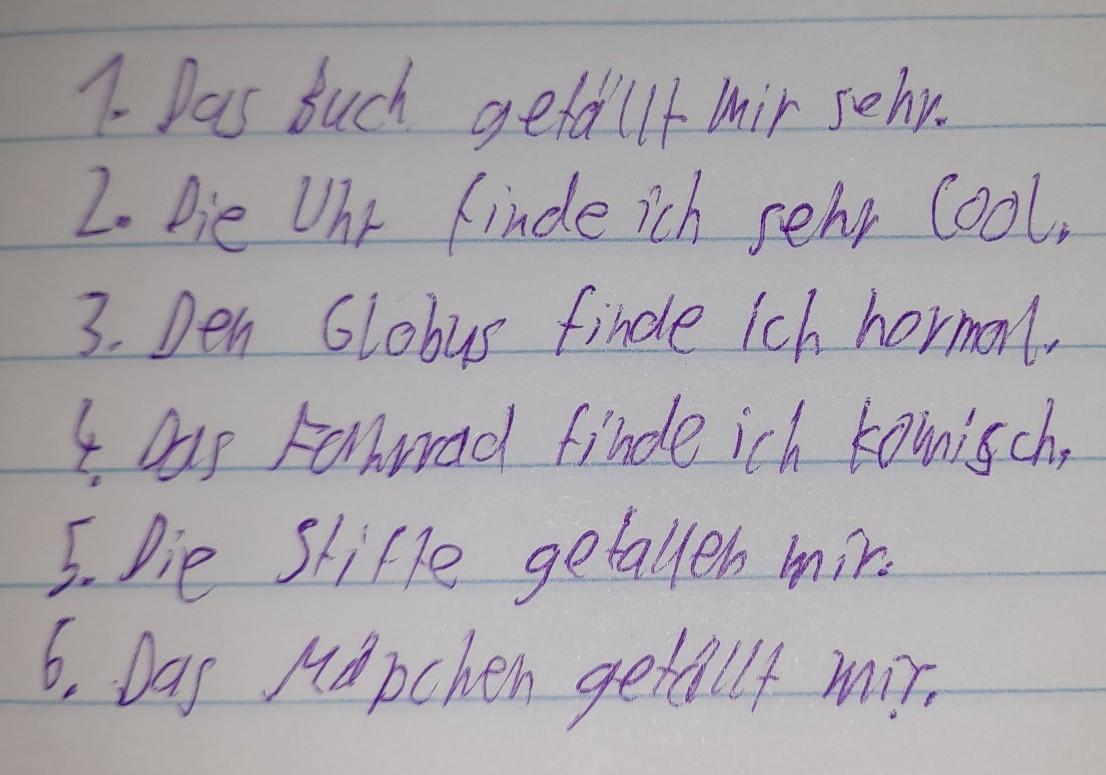 1. Das Buch gefällt mir sehr.
2. Die Uhr finde ich sehr Cool.
3. Den Globus finde ich normal.
4. Das Fahrrad finde ich komisch.
5. Die Stifte gefallen mir.
6. Das Mäpchen gefällt mir.